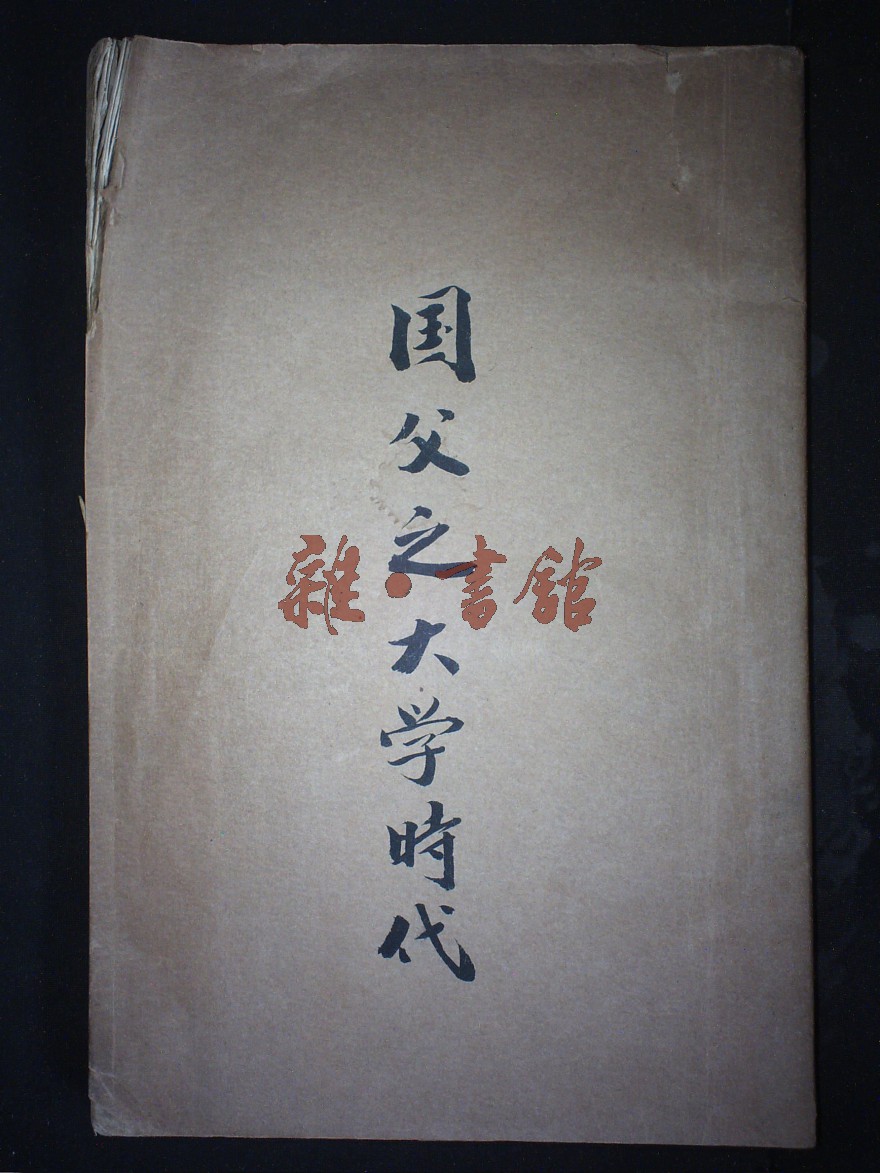 国父之大学時代
雜·書館